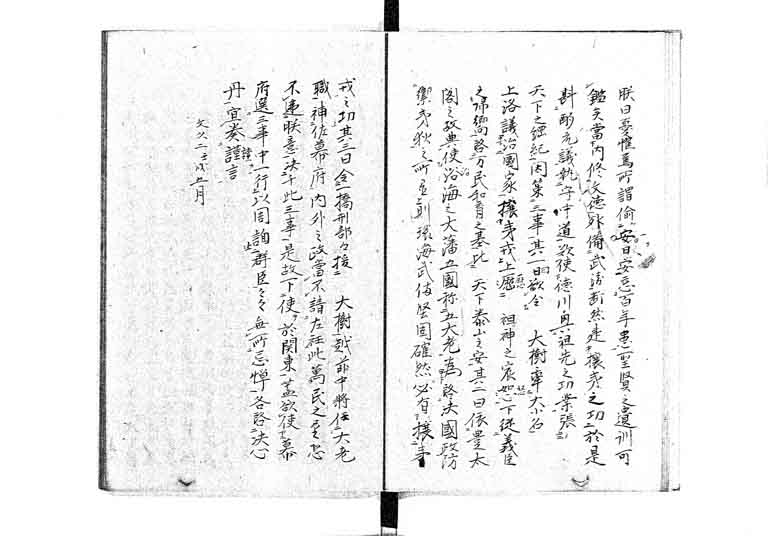 朕日憂懼焉所謂偸安日安忘百年患聖賢之遺訓可
鑑矣當內修文德外備武衛断然建攘夷之功於是
斟酌衆議執守中道欲使德川興祖先之功業張
天下之綱紀因策三事其一曰欲令 大樹率大小名
上洛議治國家攘夷戎上慰 祖神之宸怒下從義臣
之帰嚮啓万民和育之基比 天下泰山之安其二曰依豊太
閤之故典使沿海之大藩五國称五大老為啓決國政防
禦夷狄之所置則環海武備堅固確然必有攘夷
戎之功其三曰令一橋刑部々援 大樹越前中将任大老
職神佐幕府內外之政當不請左衽此萬民之望恐
不違朕意決于此三事是故下使於関東蓋欲使幕
府選三事中一行以周詢群臣々々無所忌憚各啓決心
丹宜奏謹言
文久二壬戌五月